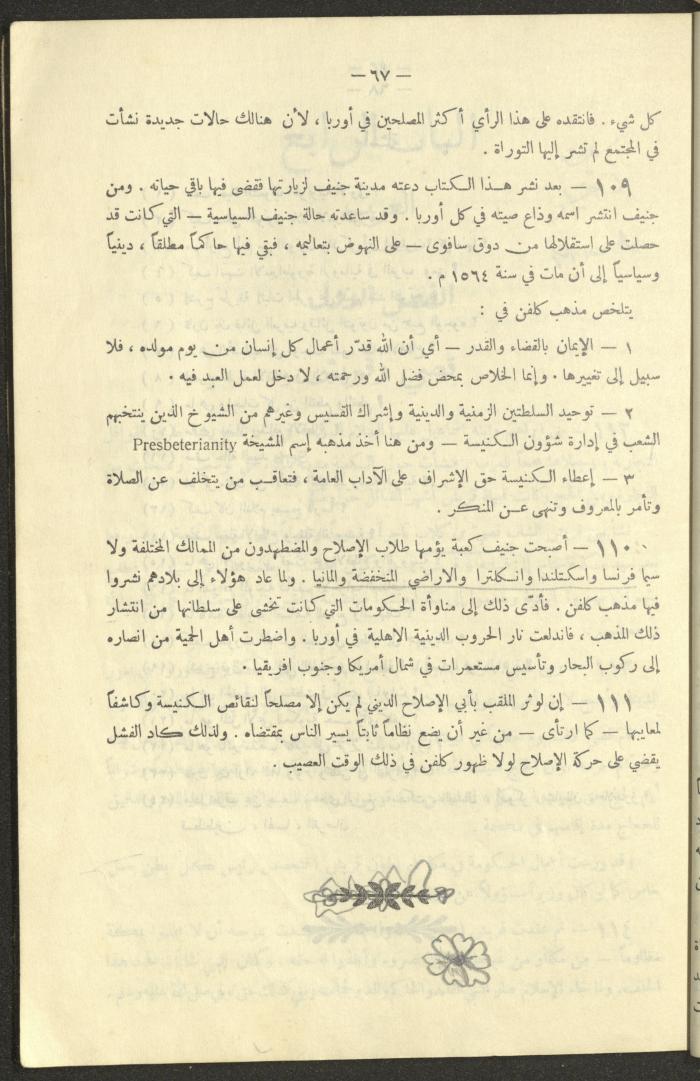 — ٦٧ —
كل شيء . فانتقده على هذا الرأي أكثر المصلحين في أوربا ، لأن هنالك حالات جديدة نشأت
في المجتمع لم تشر إليها التوراة .
١٠٩ — بعد نشر هـذا الكتاب دعته مدينة جنيف لزيارتها فقضى فيها باقي حياته . ومن
جنيف انتشر اسمه وذاع صيته في كل أوربا . وقد ساعدته حالة جنيف السياسية — التي كانت قد
حصلت على استقلالها من دوق سافوى — على النهوض بتعاليمه ، فبقي فيها حاكماً مطلقاً ، دينياً
وسياسياً إلى أن مات في سنة ١٥٦٤ م .
يتلخص مذهب كلفن في :
١ — الإيمان بالقضاء والقدر — أي أن الله قدّر أعمال كل إنسان من يوم مولده ، فلا
سبيل إلى تغييرها . وإنما الخلاص بمحض فضل الله ورحمته ، لا دخل لعمل العبد فيه .
٢ — توحيد السلطتين الزمنية والدينية وإشراك القسيس وغيرهم من الشيوخ الذين ينتخبهم
الشعب في إدارة شؤون الكنيسة — ومن هنا أخذ مذهبه إسم المشيخة Presbeterianity
٣ — إعطاء الكنيسة حق الإشراف على الآداب العامة ، فتعاقب من يتخلف عن الصلاة
وتأمر بالمعروف وتنهى عن المنكر .
١١٠ — أصبحت جنيف كعبة يؤمها طلاب الإصلاح والمضطهدون من الممالك المختلفة ولا
سيما فرنسا واسكتلندا وانكلترا والاراضي المنخفضة والمانيا . ولما عاد هؤلاء إلى بلادهم نشروا
فيها مذهب كلفن . فأدّى ذلك إلى مناوأة الحكومات التي كانت تخشى على سلطانها من انتشار
ذلك المذهب ، فاندلعت نار الحروب الدينية الاهلية في أوربا . واضطرت أهل الحمية من انصاره
إلى ركوب البحار وتأسيس مستعمرات في شمال أمريكا وجنوب افريقيا .
١١١ — إن لوثر الملقب بأبي الإصلاح الديني لم يكن إلا مصلحاً لنقائص الكنيسة وكاشفاً
لمعايبها — كما ارتأى — من غير أن يضع نظاماً ثابتاً يسير الناس بمقتضاه . ولذلك كاد الفشل
يقضي على حركة الإصلاح لولا ظهور كلفن في ذلك الوقت العصيب .